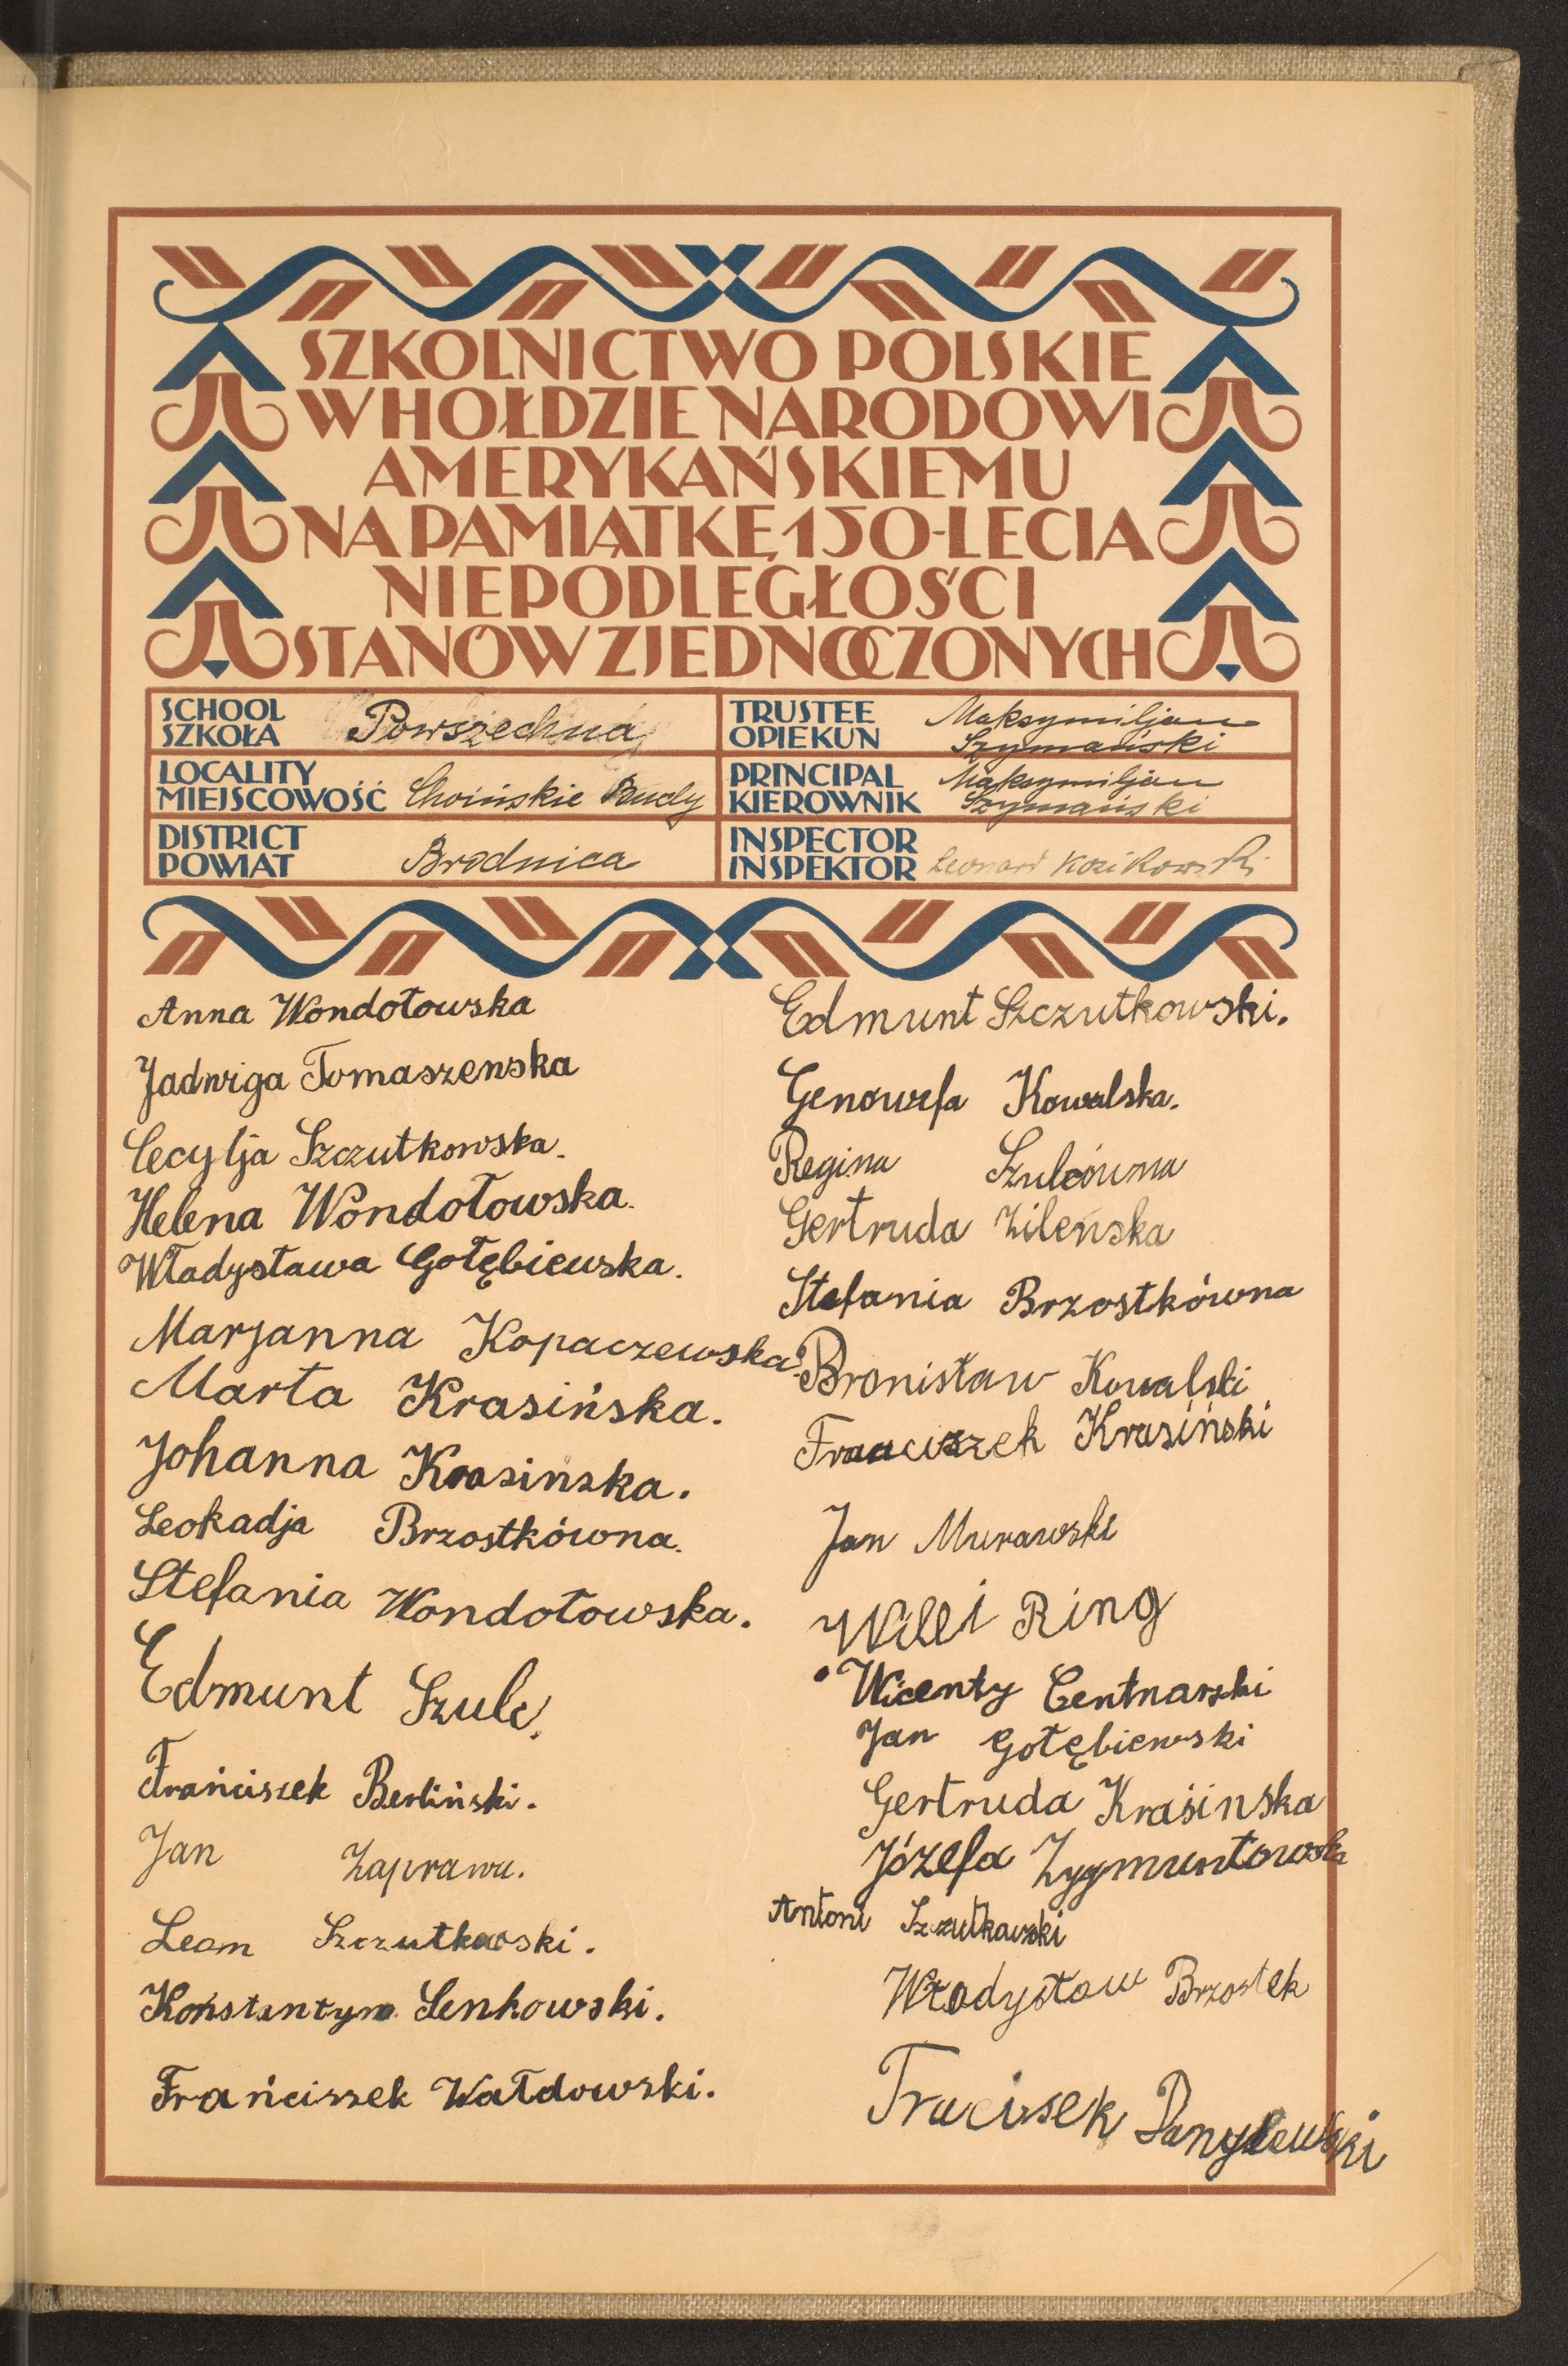 SZKOLNICTWO POLSKIE
W HOŁDZIE NARODOWI
AMERYKAŃSKIEMU
NA PAMIĄTKĘ 150-LECIA
NIEPODLEGŁOŚCI
STANÓW ZJEDNOCZONYCH
SCHOOL
SZKOŁA Powszechna
LOCALITY
MIEJSCOWOŚĆ Choińskie Budy
DISTRICT
POWIAT Brodnica
TRUSTEE Maksymiljan
OPIEKUN Szymański
PRINCIPAL Maksymiljan
KIEROWNIK Szymański
INSPECTOR
INSPEKTOR Leonard Kozikowski
Anna Wondołowska
Jadwiga Tomaszewska
Cecylja Szczutkowska.
Helena Wondołowska.
Władysława Gołębiewska.
Marjanna Kopaczewska.
Marta Krasińska.
Johanna Krasińska.
Leokadja Brzostkówna.
Stefania Wondołowska.
Edmunt Szulc.
Frańciszek Berliński.
Jan Zaprawa.
Leon Szczutkowski.
Konstantyn Lenkowski.
Frańciszek Wałdowski.
Edmunt Szczutkowski.
Genowefa Kowalska.
Regina Szulcówna
Gertruda Zileńska
Stefania Brzostkówna
Bronisław Kowalski
Franciszek Krasiński
Jan Murawski
Willi Ring
Wicenty Centnarski
Jan Gołębiewski
Gertruda Kraśinska
Józefa Zygmuntowska
Antoni Szczutkowski
Władysław Brzostek
Fracisek